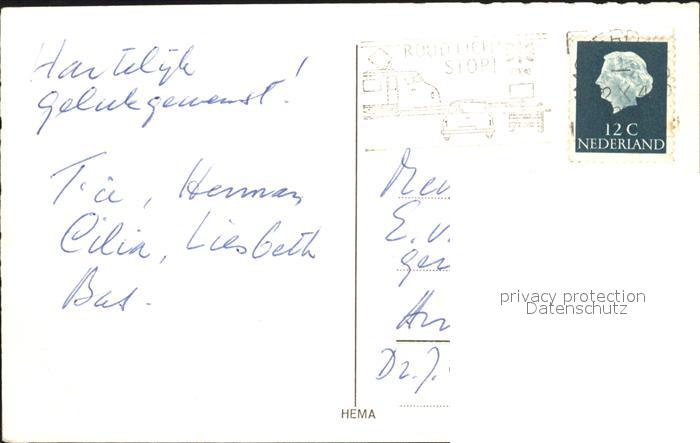 Hartelijk
gelukgewenst!
Tia, Herman
Cilia, Liesbeth
Bas.
ROOD LICHT
STOP!
12 C
NEDERLAND
E. v.
Dr. J.
privacy protection
Datenschutz
HEMA